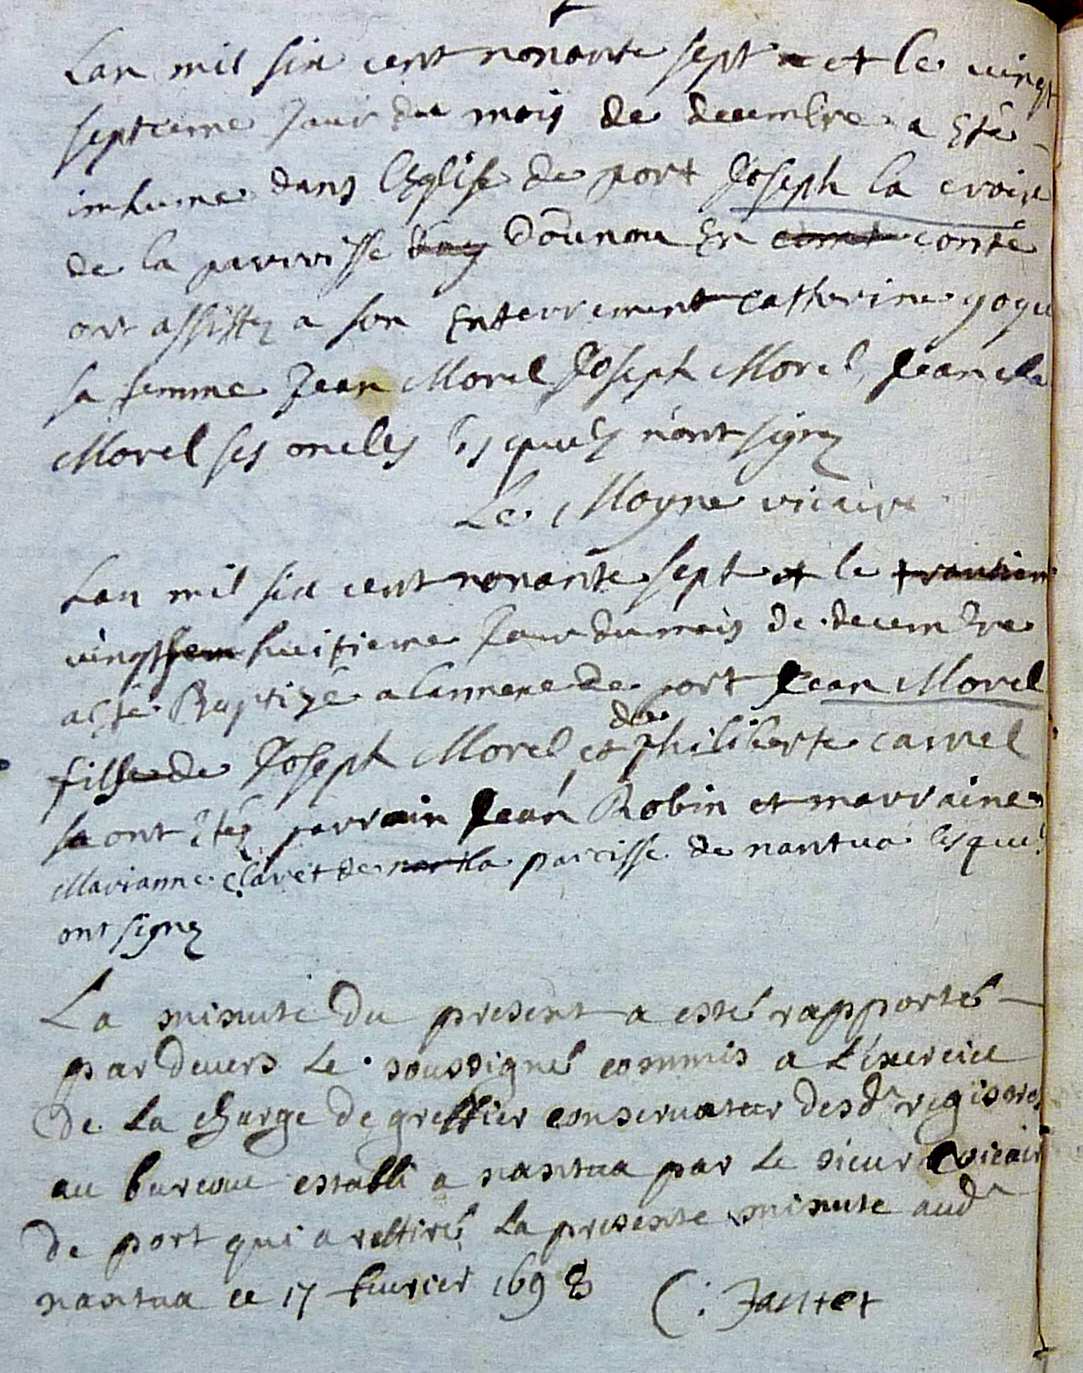 Lan mil six cent nonante sept et le vingt
septieme Jour du mois de decembre a Eté
inhume dans l'Eglise de port Joseph la croix
de la parroisse En conté
ont assistez a son Enterrement catherine
sa femme Jean Morel Joseph Morel, Jean cla
Morel ses oncles lesquels n'ont signez
Le Moyne vicaire
Lan mil six cent nonante sept et le
vingt huitieme Jour du mois de decembre
a esté Baptizé a lannexe de port Jean Morel
fills de Joseph Morel, et de philiberte carrel
ont Etez parrain Jean Robin et marraine
Marianne claret de la paroisse de nantua lesquels
ont signez
La minute du present a esté rapporté
par devers Le soussigné commis a L'exercice
de La charge de greffier conservateur desd. registres
au bureau establi a nantua par Le sieur vicaire
de port qui a rettiré La presente minute aud.
nantua ce 17 fevrier 1698 C: Jantet